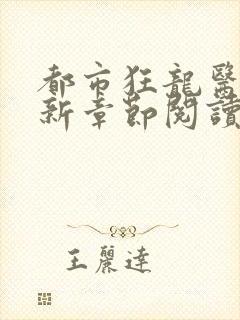 都市狂龍醫
新章節閱讀
王麗達